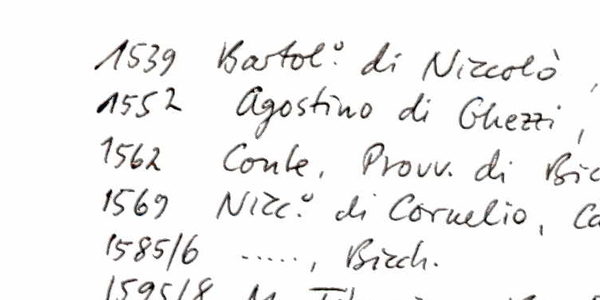 1539 Bartol.º di Niccolò,
1552 Agostino di Ghezzi,
1562 Conte, Provv. di
1569 Nicc.º di Cornelio,
1585/6 ....., Bicch.
1595/8